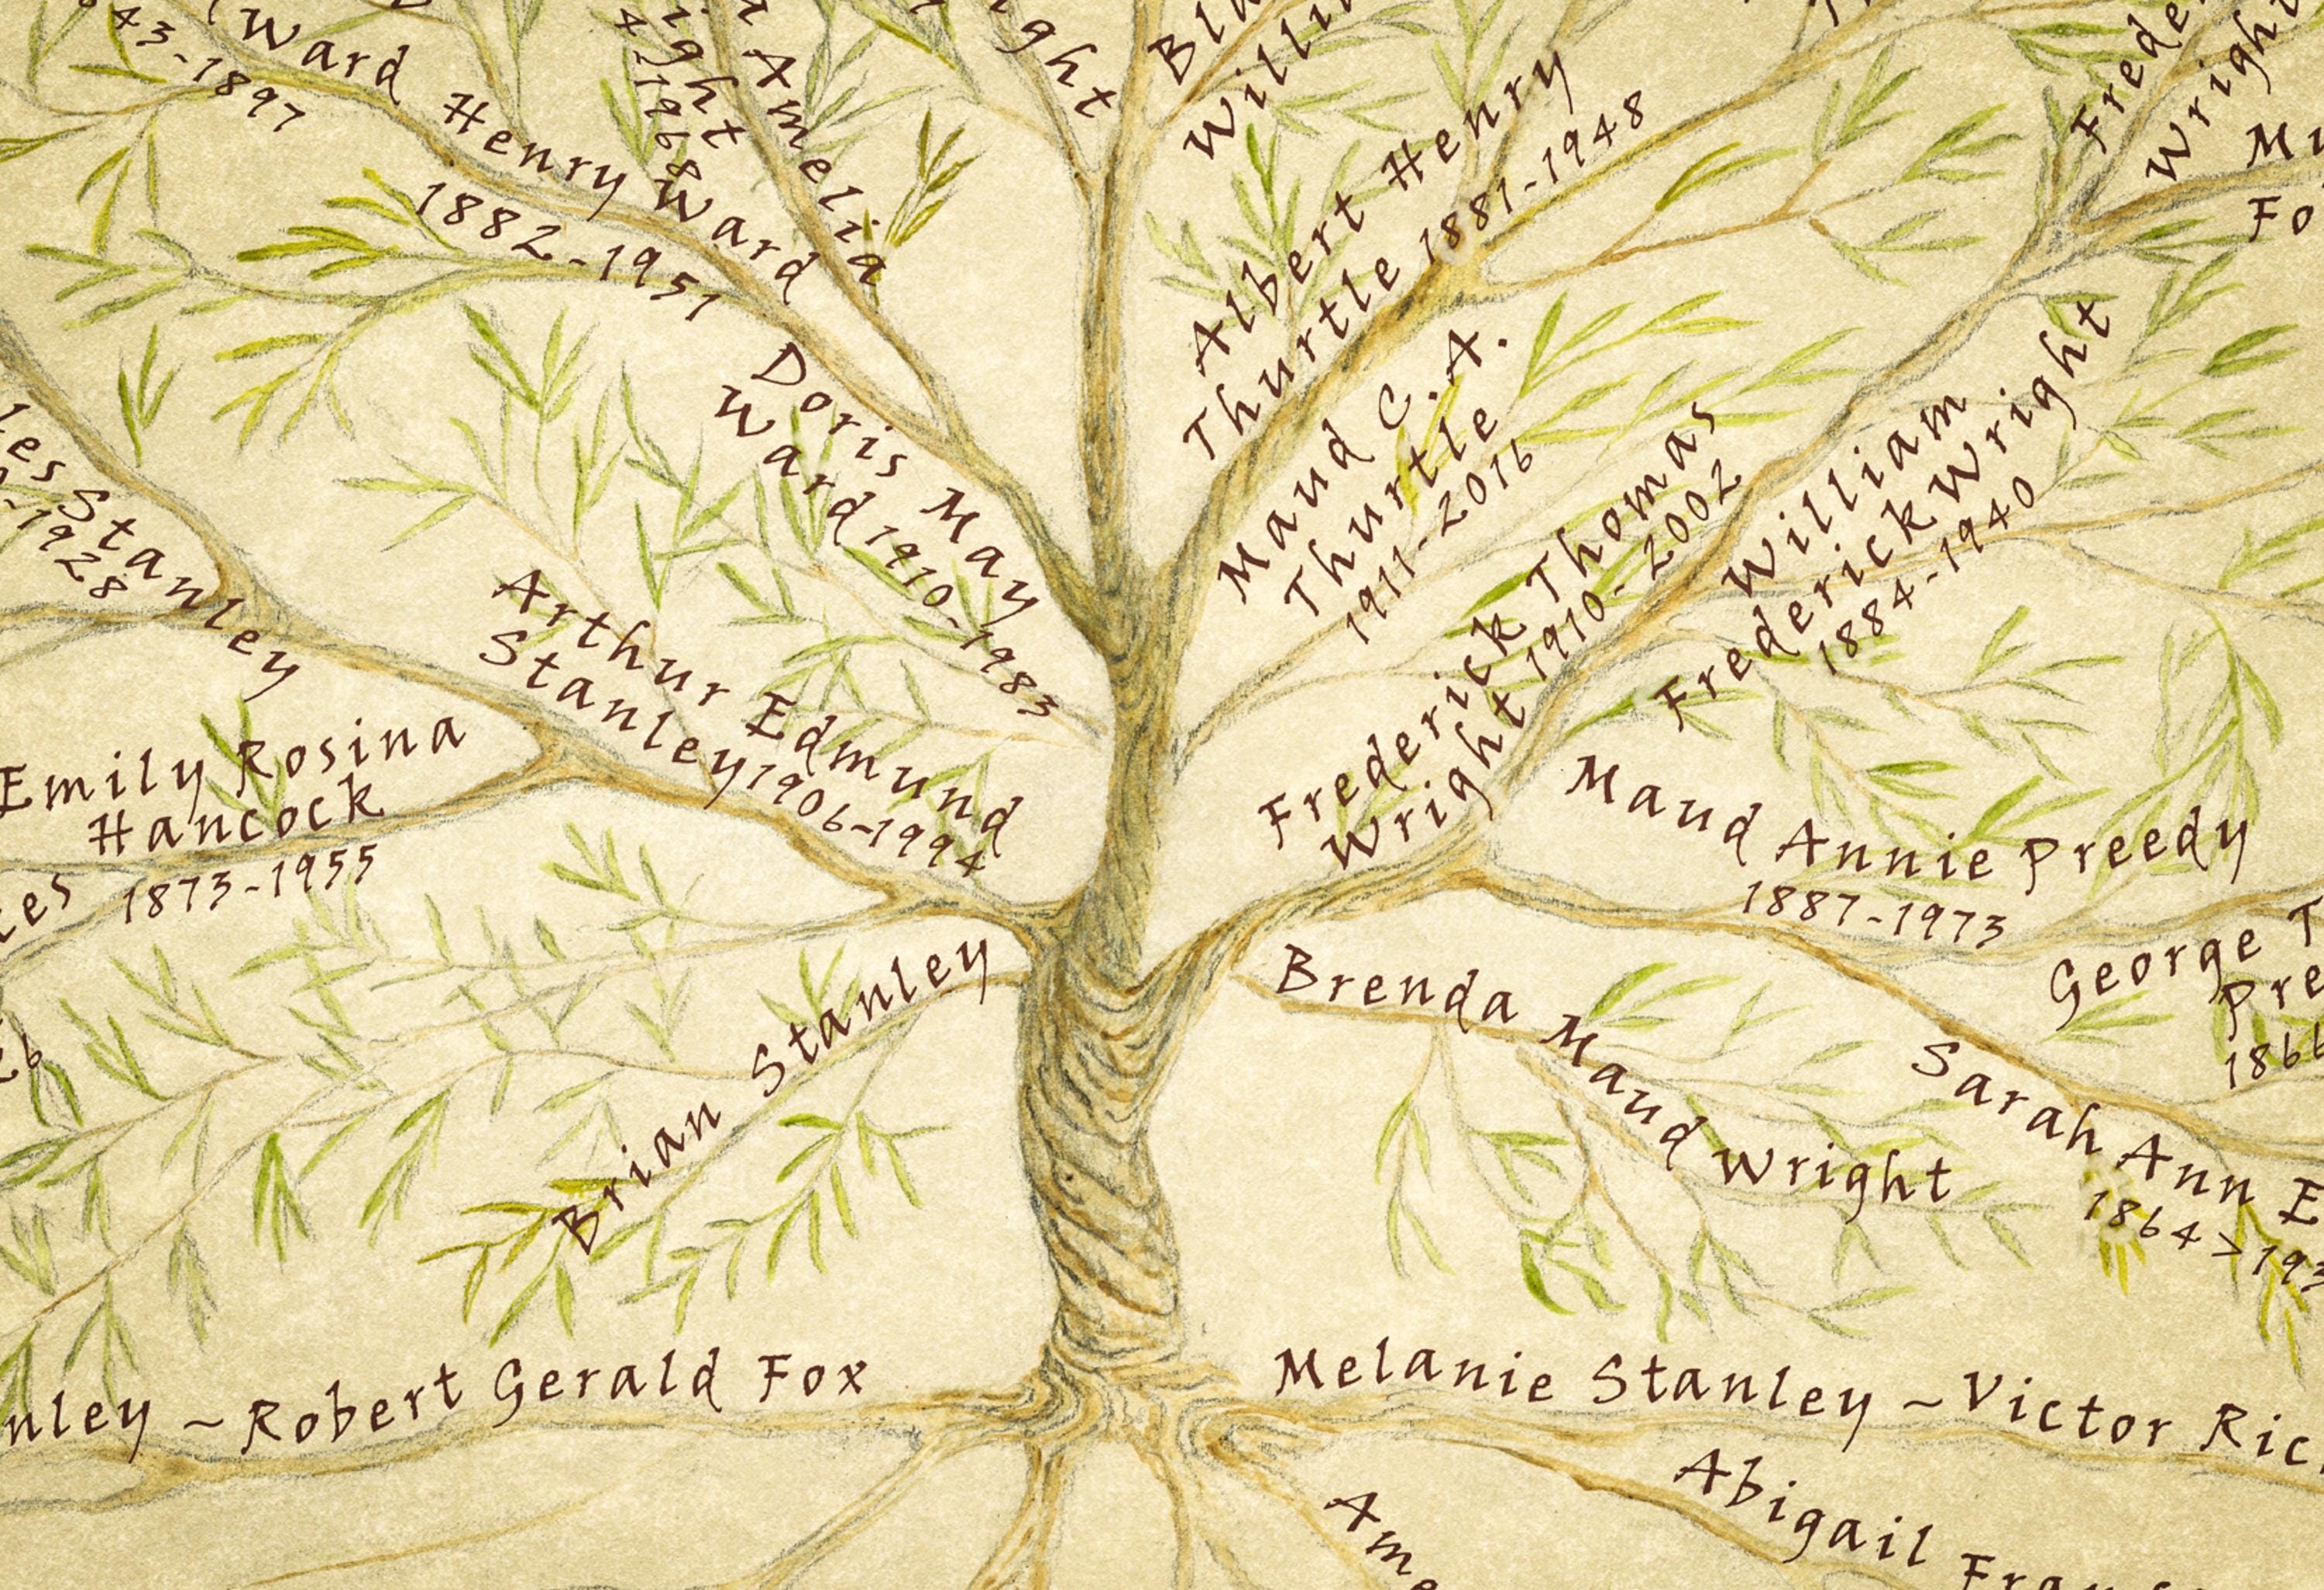 Ward
43-1897
Henry Ward
1882-1951
Amelia
ight
1968
ight
Albert Henry
Thurtle 1881-1948
Wright
Doris May
Ward 1910-1983
Maud C. A.
Thurtle
1911-2016
Frederick Thomas
Wright 1910-2002
William
Frederick Wright
1884-1940
les Stanley
-1928
Arthur Edmund
Stanley 1906-1994
Emily Rosina
Hancock
1873-1955
Maud Annie Preedy
1887-1973
George T
Pre
186
Brian Stanley
Brenda Maud Wright
Sarah Ann E
1864>193
nley ~ Robert Gerald Fox
Melanie Stanley ~ Victor Ric
Abigail Fran
Ame